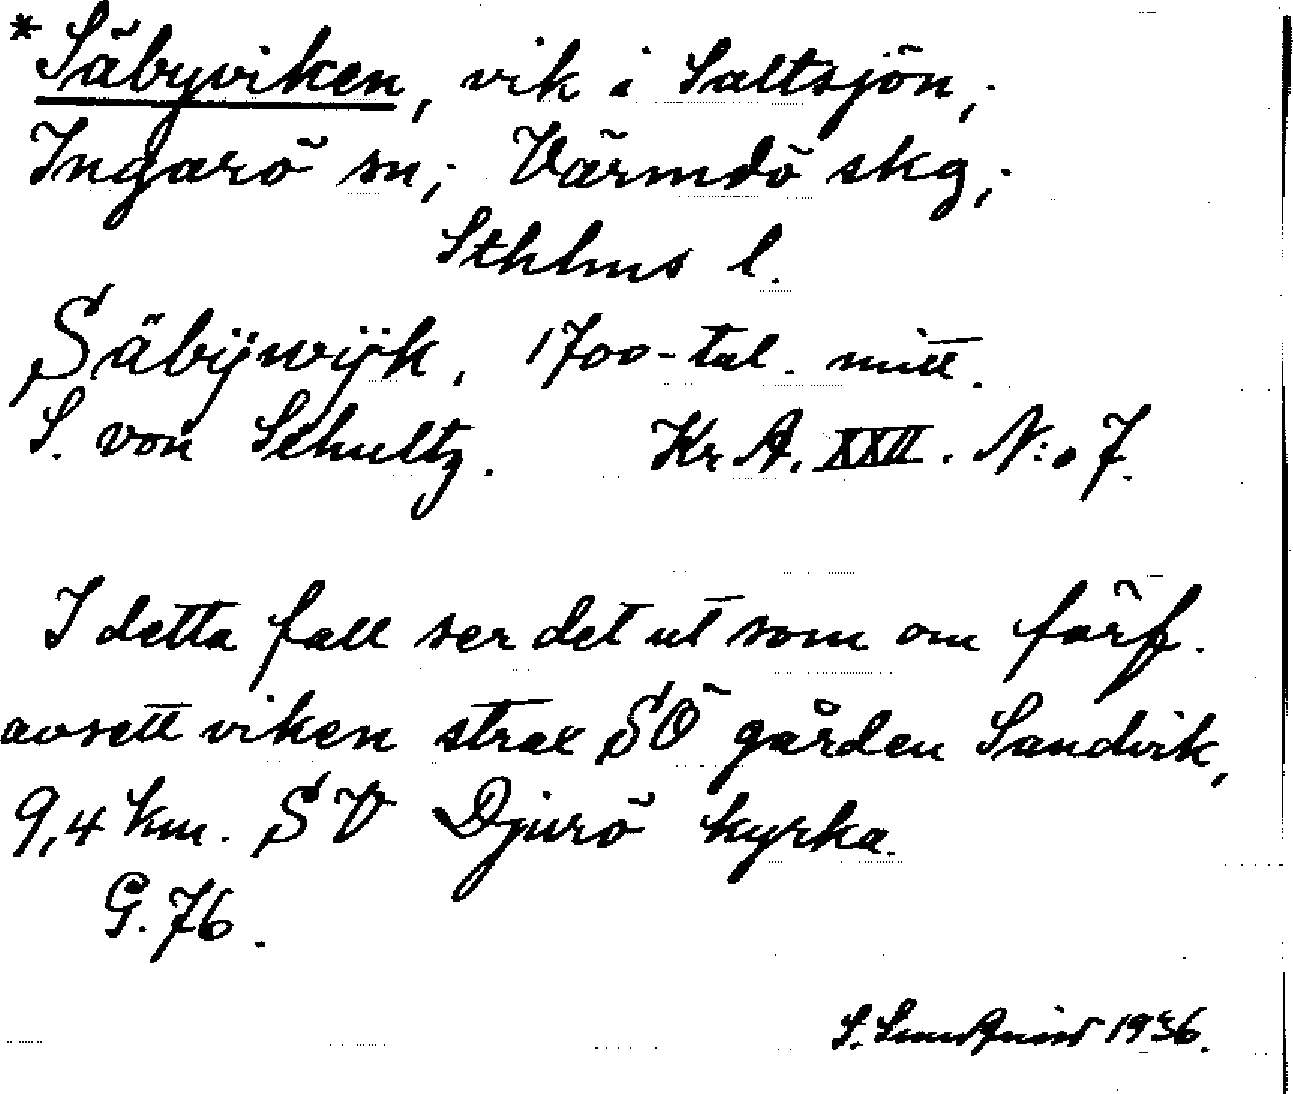 *Säbyviken, vik i Saltsjön,
Ingarö sn; Värmdö skg;
Sthlms l.
Säbÿwÿk, 1700-tal. mitt.
S. von Schultz. Kr A. XXII. N:o 7.
I detta fall ser det ut som om förf.
avsett viken strax SÖ gården Sandvik,
9,4 km. SV Djurö kyrka.
G. 76.
S. 1936.